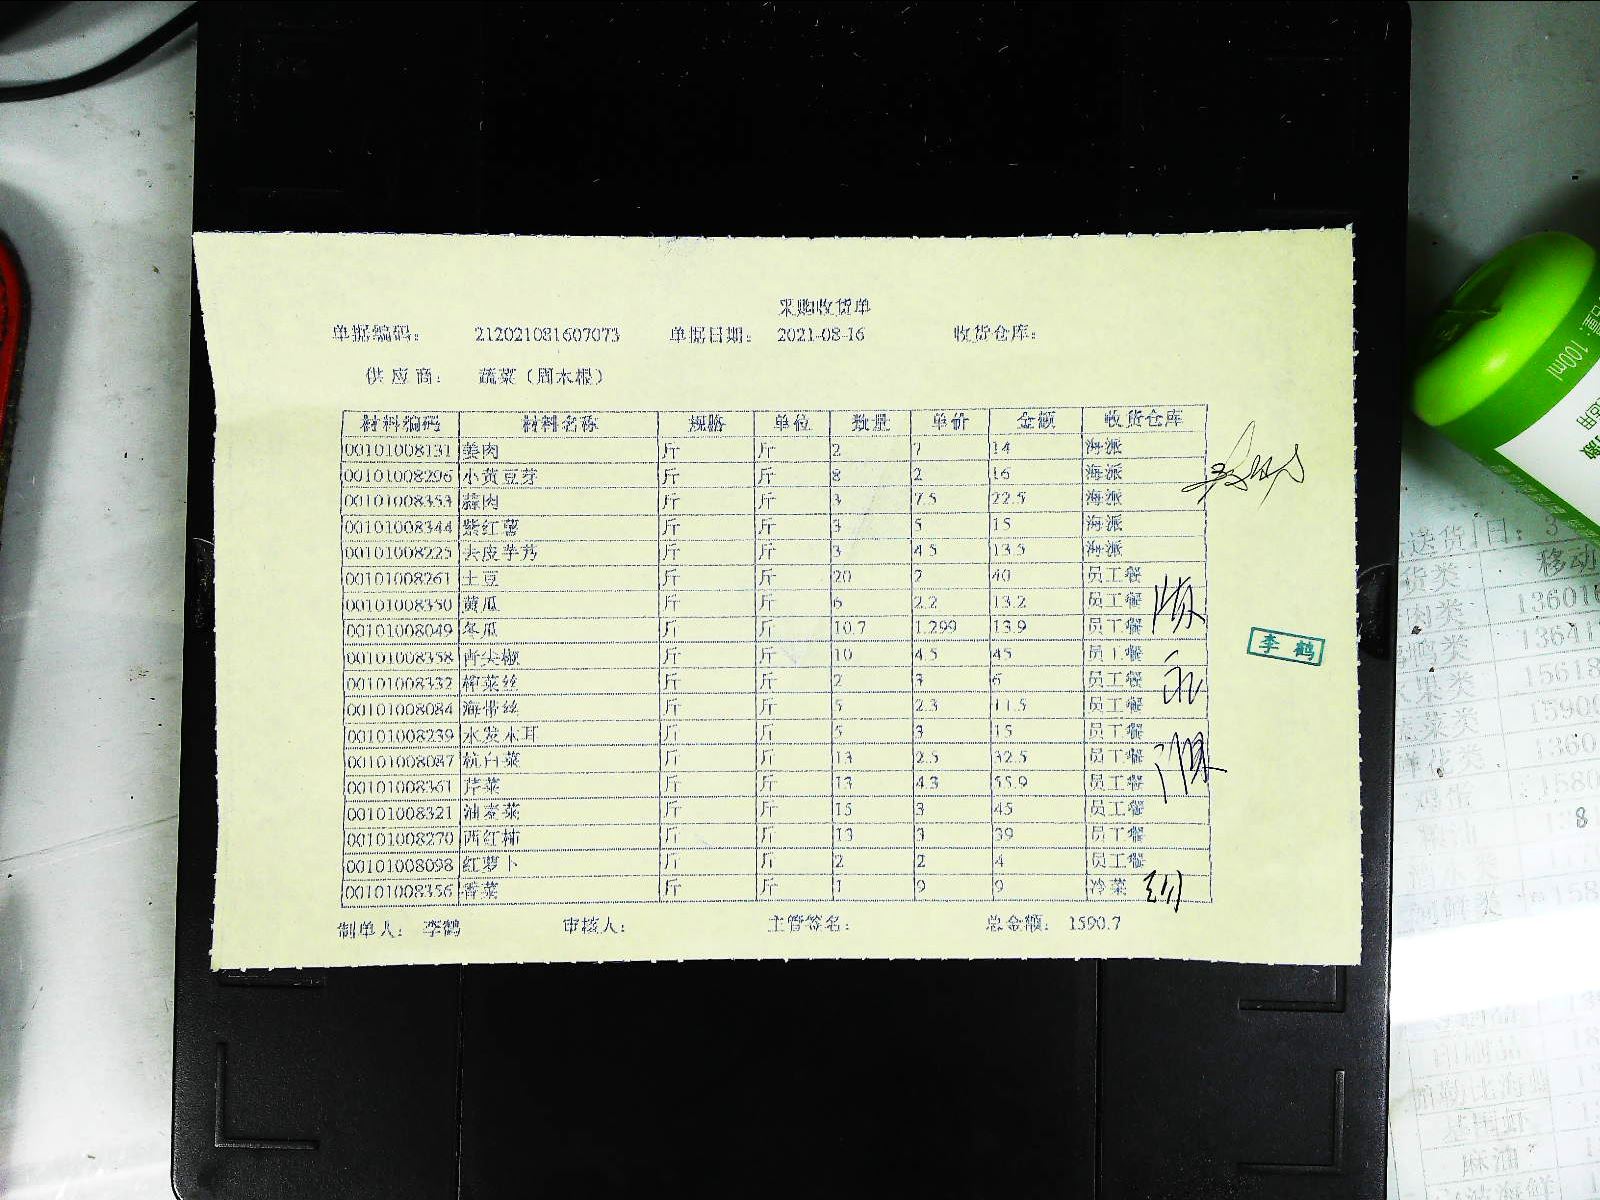 采购收货单
单据编码： 212021081607073 单据日期： 2021-08-16 收货仓库：
供应商： 蔬菜（周木根）
材料编码 材料名称 规格 单位 数量 单价 金额 收货仓库
00101008131 姜肉 斤 斤 2 7 14 海派
00101008296 小黄豆芽 斤 斤 8 2 16 海派
00101008353 蒜肉 斤 斤 3 7.5 22.5 海派
00101008344 紫红薯 斤 斤 3 5 15 海派
00101008225 去皮芋艿 斤 斤 3 4.5 13.5 海派
00101008261 土豆 斤 斤 20 2 40 员工餐
00101008350 黄瓜 斤 斤 6 2.2 13.2 员工餐
00101008049 冬瓜 斤 斤 10.7 1.299 13.9 员工餐
00101008358 青尖椒 斤 斤 10 4.5 45 员工餐
00101008332 榨菜丝 斤 斤 2 3 6 员工餐
00101008084 海带丝 斤 斤 5 2.3 11.5 员工餐
00101008239 水发木耳 斤 斤 5 3 15 员工餐
00101008087 杭白菜 斤 斤 13 2.5 32.5 员工餐
00101008361 芹菜 斤 斤 13 4.3 55.9 员工餐
00101008321 油麦菜 斤 斤 15 3 45 员工餐
00101008270 西红柿 斤 斤 13 3 39 员工餐
00101008098 红萝卜 斤 斤 2 2 4 员工餐
00101008356 香菜 斤 斤 1 9 9 冷菜
制单人： 李鹤 审核人： 主管签名： 总金额： 1590.7
李鹤
100ml
送货 日： 3
货类 移动
肉类 13601
鸭类
果类 15618
菜类
鲜类
印刷品
麻油